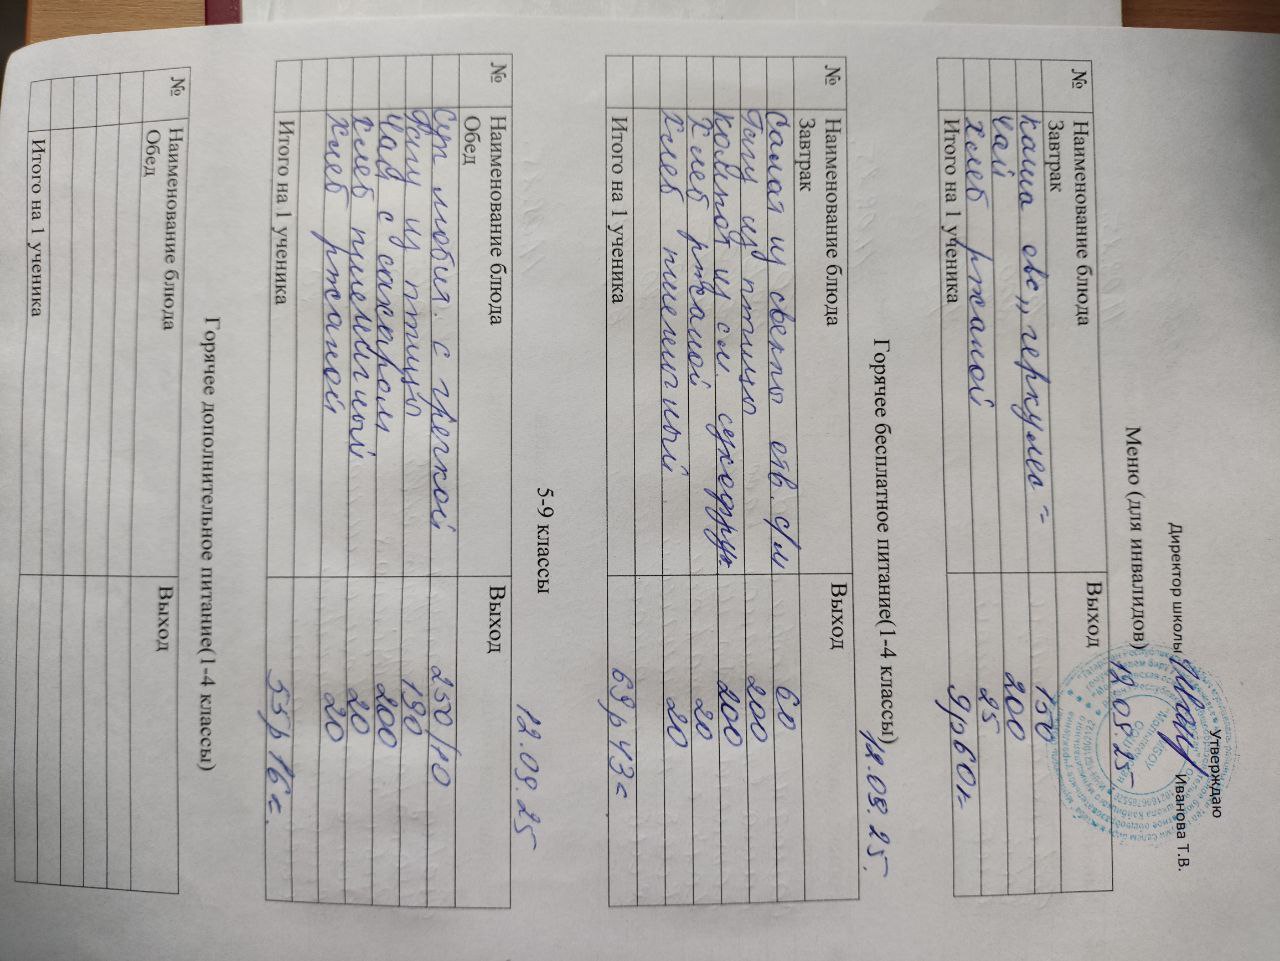 Утверждаю
Директор школы Иванова Т.В.
Меню (для инвалидов) 12.09.25
№ Наименование блюда Выход
Завтрак
каша овс „геркулес" 150
чай 200
хлеб ржаной 25
Итого на 1 ученика 9р60к
Горячее бесплатное питание(1-4 классы) 12.09.25.
№ Наименование блюда Выход
Завтрак
Салат из свеклы отв. с/м 60
Рагу из птицы 200
компот из см. сухофрук 200
Хлеб ржаной 20
Хлеб пшеничный 20
Итого на 1 ученика 69р43к
5-9 классы 12.09.25
№ Наименование блюда Выход
Обед
Суп любит. с гречкой 250/10
Рагу из птицы 190
Чай с сахаром 200
Хлеб пшеничный 20
Хлеб ржаной 20
Итого на 1 ученика 55р16к.
Горячее дополнительное питание(1-4 классы)
№ Наименование блюда Выход
Обед
Итого на 1 ученика